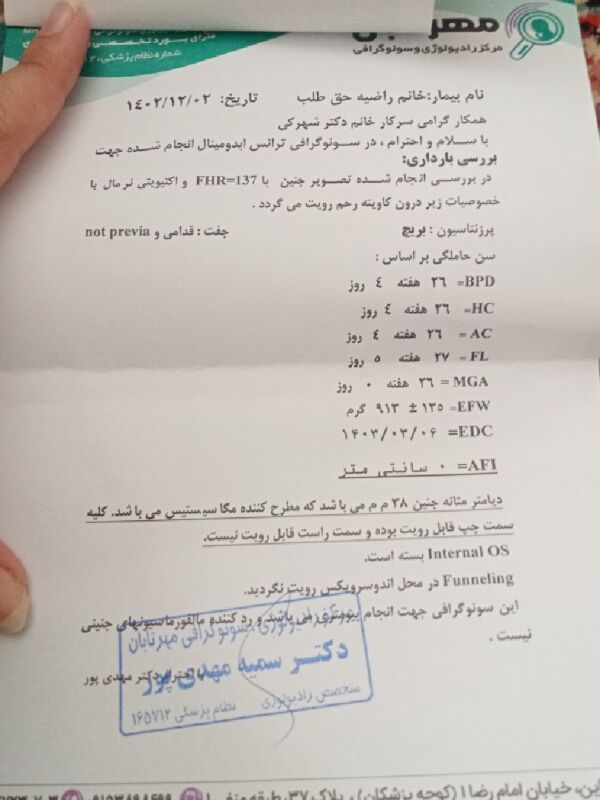 مرکز رادیولوژی و سونوگرافی
دارای بورد تخصصی
شماره نظام پزشکی:
نام بیمار: خانم راضیه حق طلب تاریخ: ۱۴۰۲/۱۲/۰۲
همکار گرامی سرکار خانم دکتر شهرکی
با سلام و احترام ، در سونوگرافی ترانس ابدومینال انجام شده جهت
بررسی بارداری:
در بررسی انجام شده تصویر جنین با FHR=137 و اکتیویتی نرمال با
خصوصیات زیر درون کاویته رحم رویت می گردد .
پرزنتاسیون : بریچ جفت : قدامی و not previa
سن حاملگی بر اساس :
BPD= ۲۶ هفته ٤ روز
HC= ۲۶ هفته ٤ روز
AC = ۲۶ هفته ٤ روز
FL = ۲۷ هفته ٥ روز
MGA = ۲۶ هفته ۰ روز
EFW= ۹۱۳ ± ۱۳۵ گرم
EDC= ۱۴۰۳/۰۳/۰۶
AFI= ۰ سانتی متر
دیامتر مثانه جنین ۳۸ م م می باشد که مطرح کننده مگا سیستیس می باشد. کلیه
سمت چپ قابل رویت بوده و سمت راست قابل رویت نیست.
Internal OS بسته است.
Funneling در محل اندوسرویکس رویت نگردید.
این سونوگرافی جهت انجام بیومتری می باشد و رد کننده مالفورماسیونهای جنینی
نیست .
با احترام دکتر مهدی پور
مرکز رادیولوژی، سونوگرافی مهرتابان
دکتر سمیه مهدی پور
متخصص رادیولوژی نظام پزشکی ۱۶۵۷۱۲
خیابان امام رضا ۱ (کوچه پزشکان) ، پلاک ۳۷، طبقه